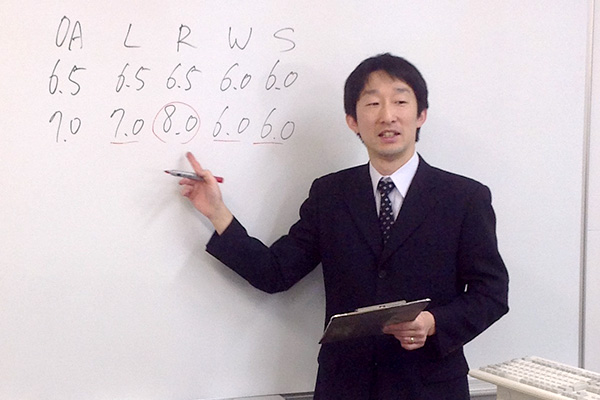 OA L R W S
6.5 6.5 6.5 6.0 6.0
7.0 7.0 8.0 6.0 6.0